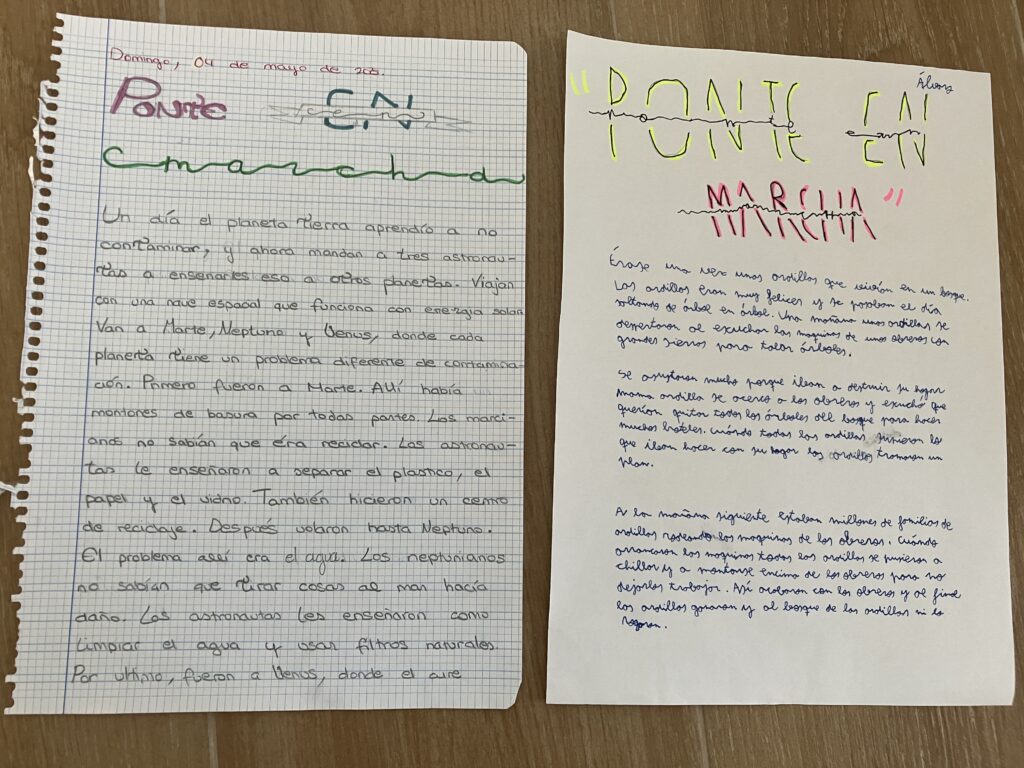 Domingo, 04 de mayo de 2025.
PONTE EN
marcha
Un día el planeta tierra aprendío a no
contaminar, y ahora mandan a tres astronau-
tas a enseñarles eso a otros planetas. Viajan
con una nave espacial que funciona con energia solar.
Van a Marte, Neptuno y Venus, donde cada
planeta tiene un problema diferente de contamina-
ción. Primero fueron a Marte. Allí había
montones de basura por todas partes. Los marci-
anos no sabían que éra reciclar. Los astronau-
tas le enseñaron a separar el plastico, el
papel y el vidrio. También hicieron un centro
de reciclaje. Después volaron hasta Neptuno.
El problema allí era el agua. Los neptunianos
no sabían que tirar cosas al mar hacía
daño. Los astronautas les enseñaron como
limpiar el agua y usar filtros naturales.
Por ultimo, fueron a Venus, donde el aire
Álvaro
"PONTE EN
ponte en
MARCHA"
marcha
Érase una vez unas ardillas que vivían en un bosque.
Las ardillas eran muy felices y se pasaban el día
saltando de árbol en árbol. Una mañana unas ardillas se
despertaron al escuchar las maquinas de unos obreros con
grandes sierras para talar árboles.
Se asustaron mucho porque iban a destruir su hogar
mama ardilla se acerco a los obreros y escuchó que
querían quitar todos los árboles del bosque para hacer
muchos hoteles. Cuándo todas las ardillas supieron lo
que iban hacer con su hogar las ardillas tramaron un
plan.
A la mañana siguiente estaban millones de familias de
ardillas rodeando las maquinas de los obreros. Cuándo
arrancaron las maquinas todas las ardillas se pusieron a
chillar y a montarse encima de los obreros para no
dejarlos trabajar. Así acabaron con los obreros y al final
las ardillas ganaron y al bosque de las ardillas ni lo